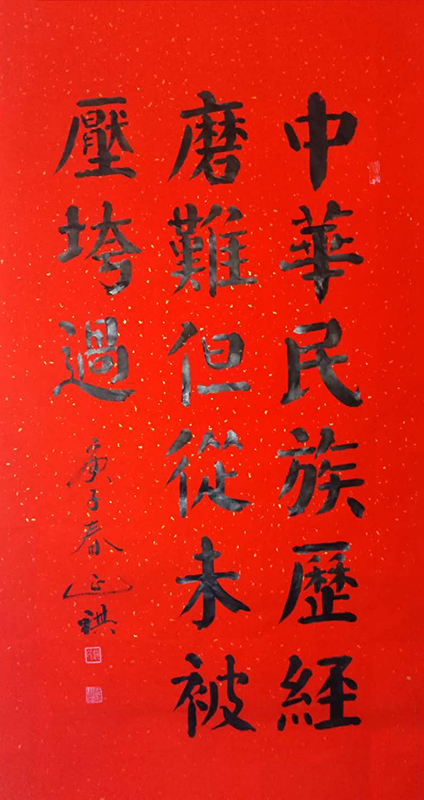 中華民族歷經
磨難但從未被
壓垮過
庚子春正祺